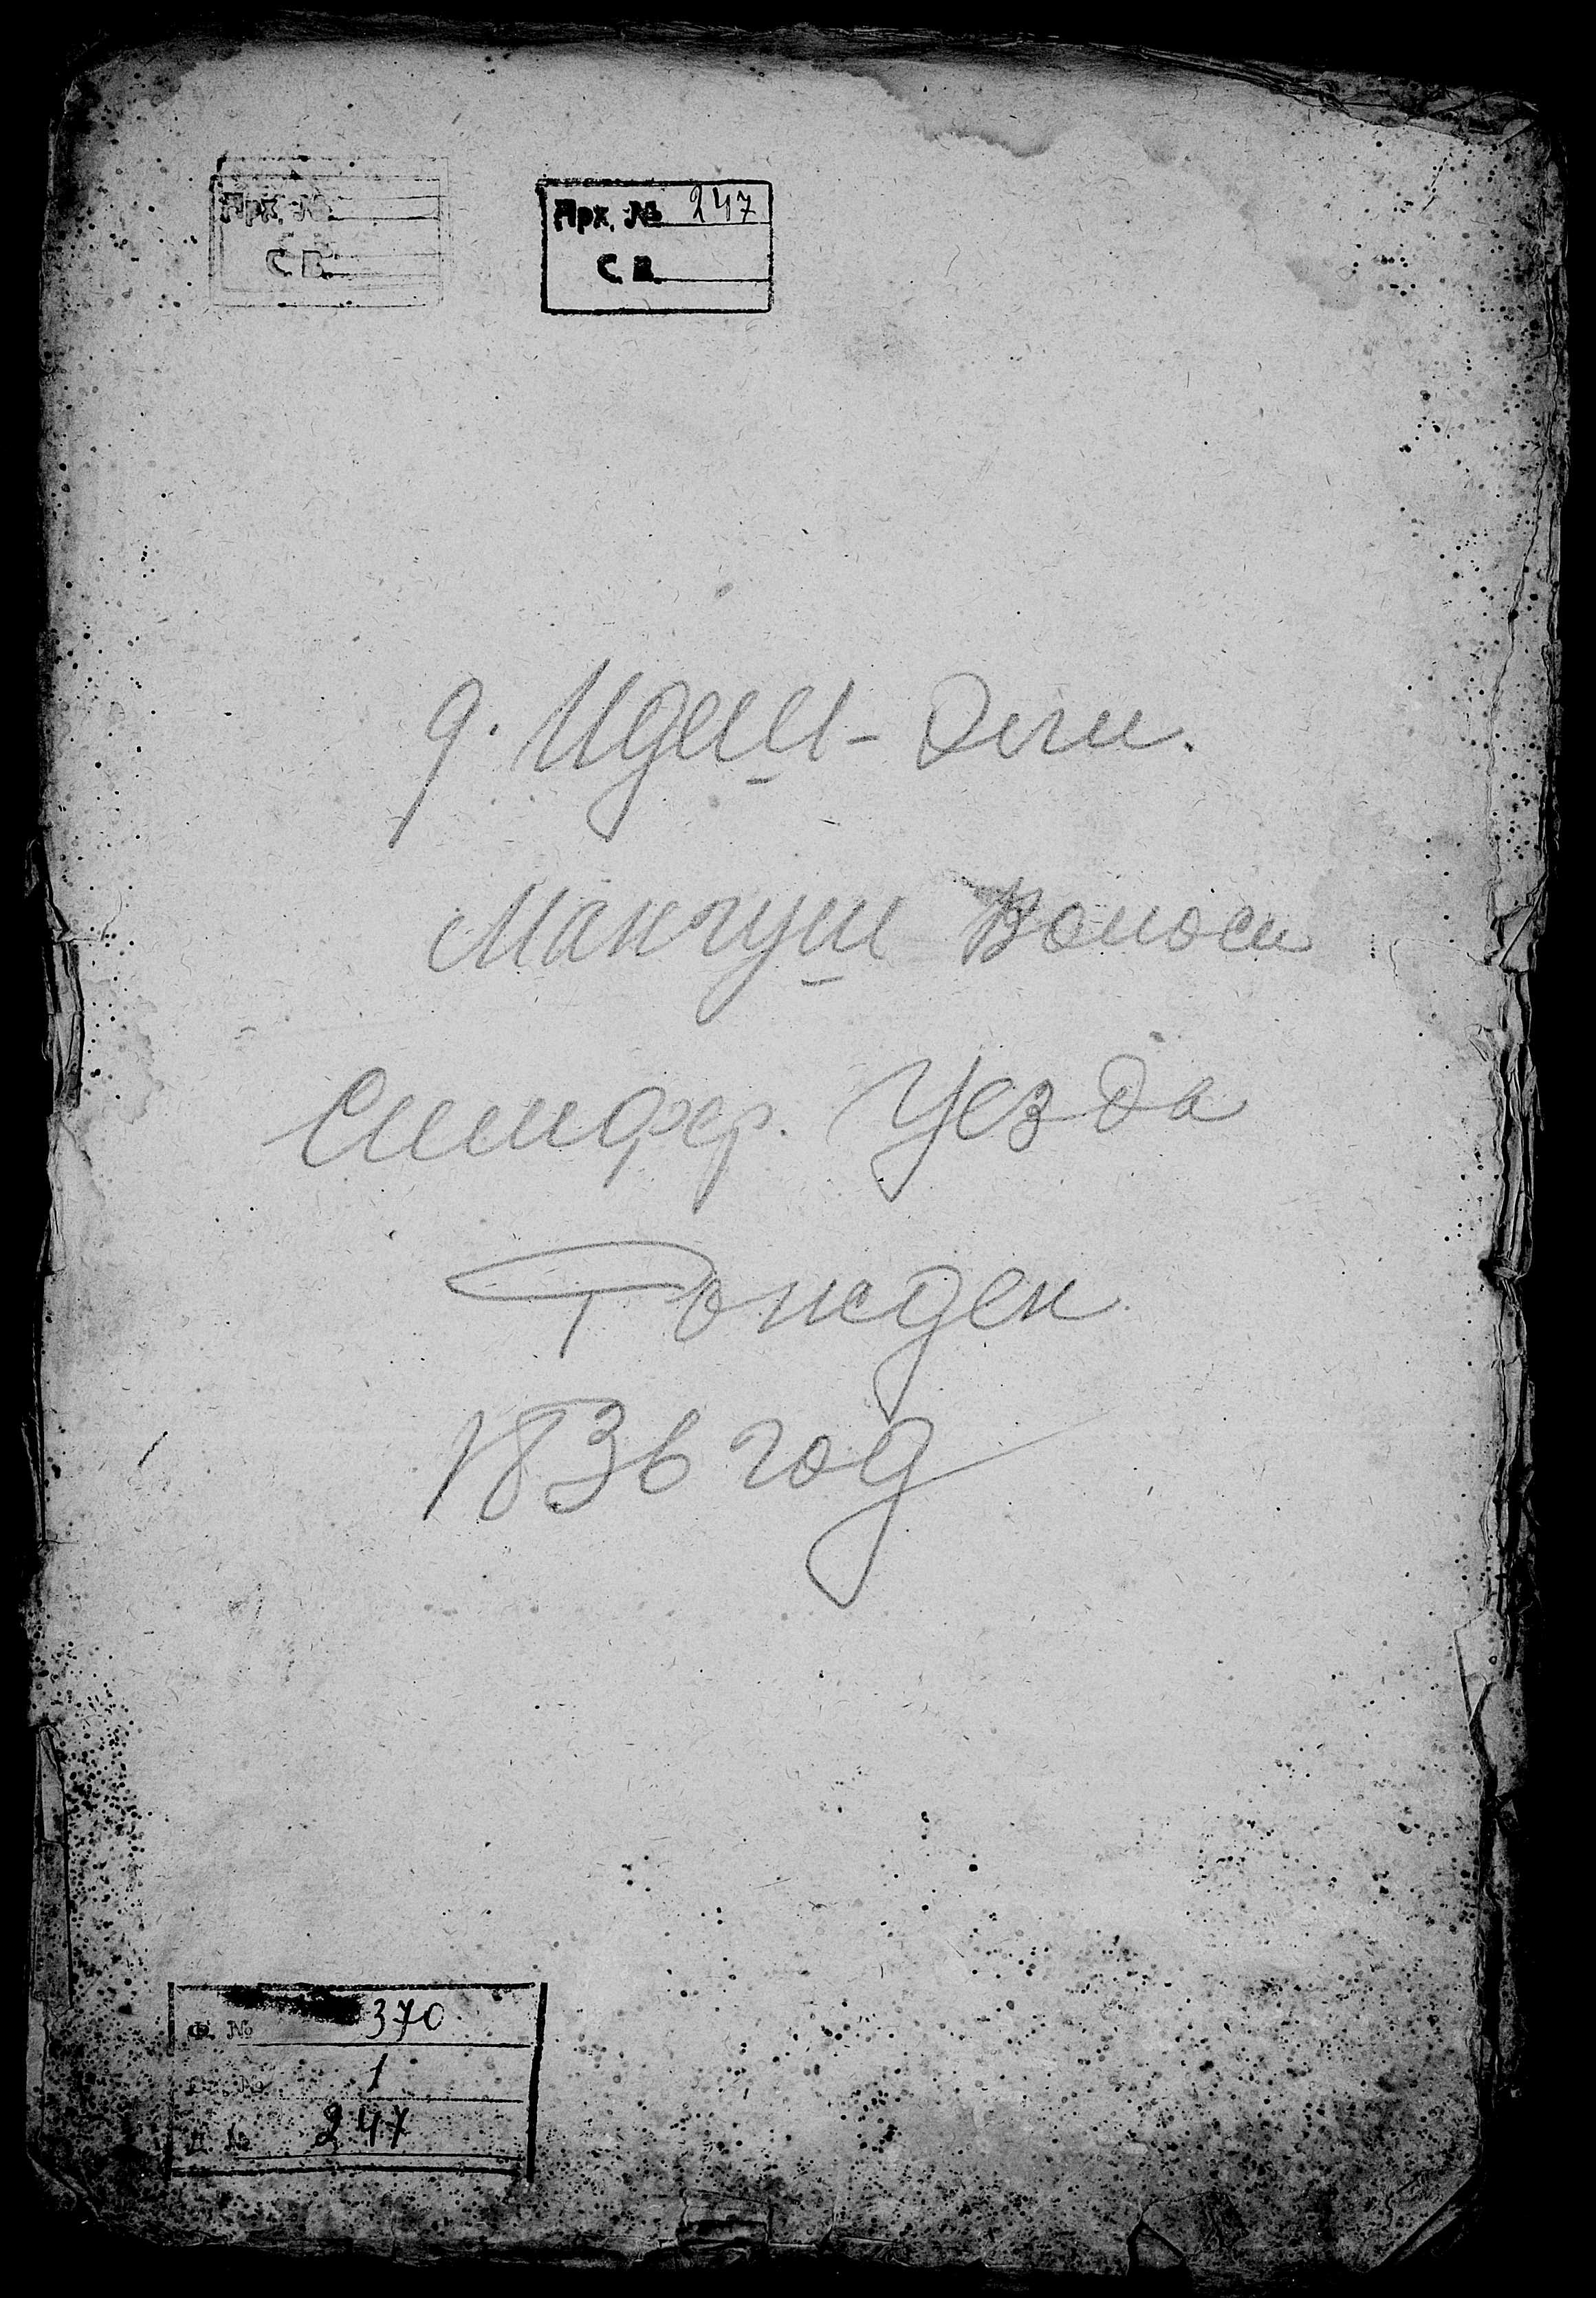 Арх. №
С. В.
Арх. № 247
С. В.
д. Идеш-Эли.
Мангуш Волост
Симфер. Уезда
Рожден
1836 год
Ф. № 370
Оп. № 1
Д. № 247